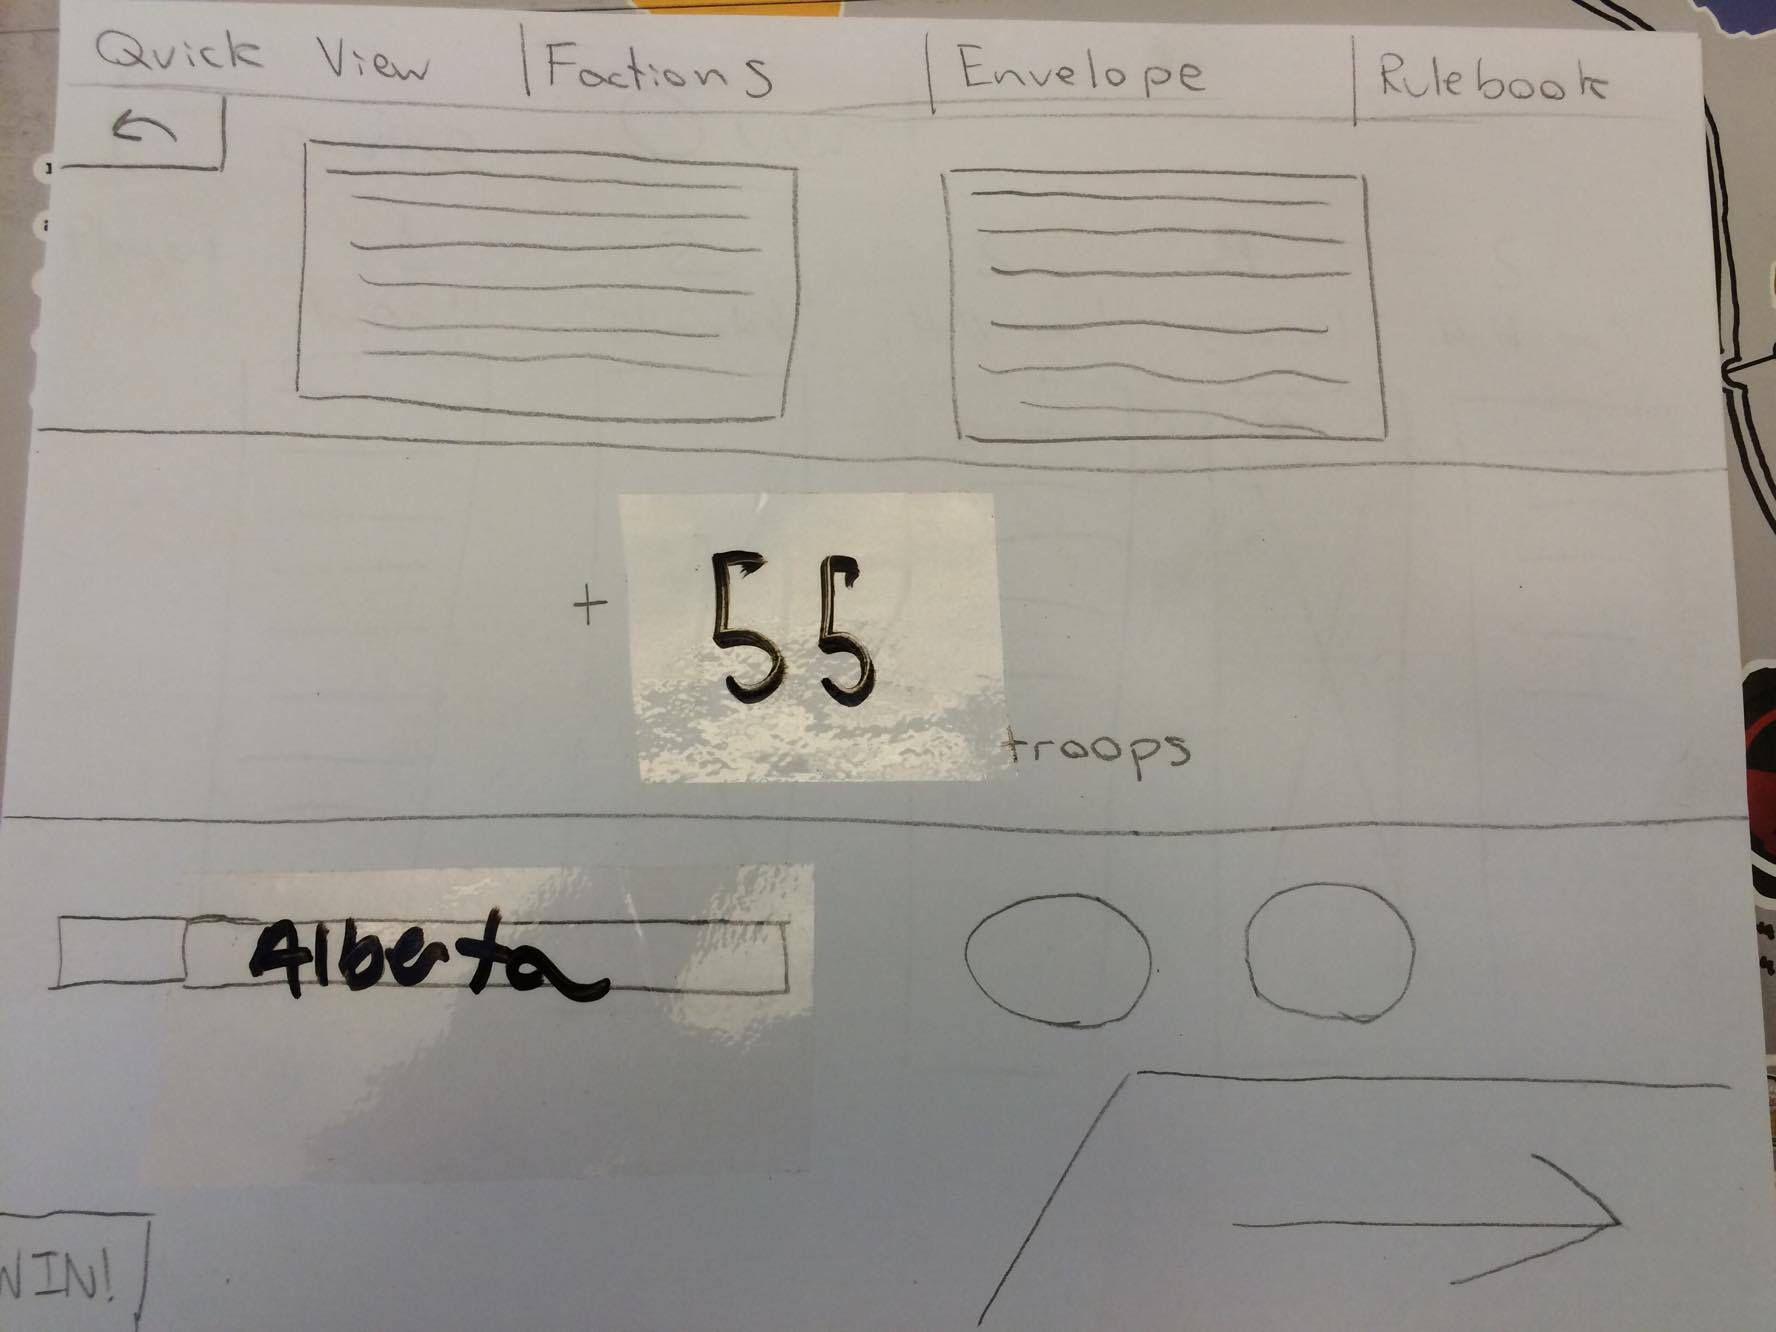 Quick View Factions Envelope Rulebook
+ 55 troops
Alberta
WIN!